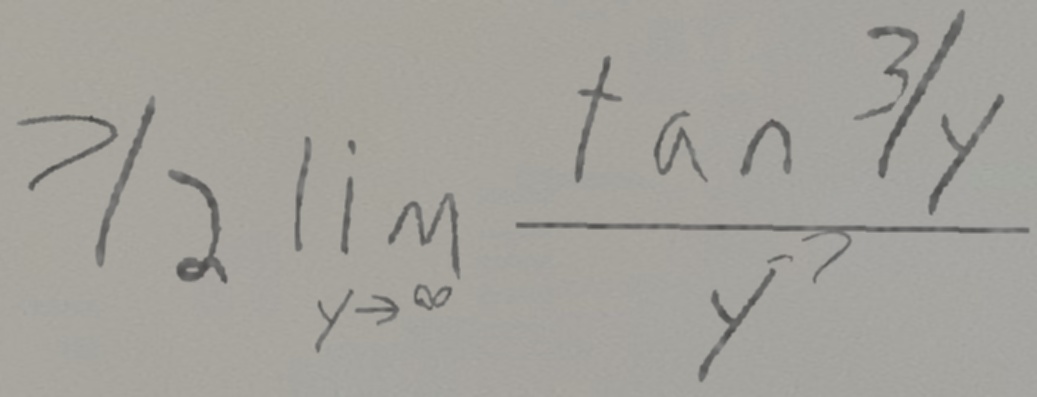 7/2 lim_{y→∞} \frac{tan 3/y}{y^{-7}}